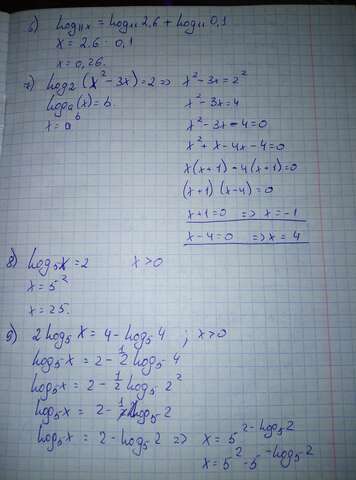 6) log₁₁x = log₁₁ 2,6 + log₁₁ 0,1
x = 2,6 · 0,1
x = 0,26.
7) log₂ (x² - 3x) = 2 => x² - 3x = 2²
logₐ(x) = b. x² - 3x = 4
x = aᵇ x² - 3x - 4 = 0
x² + x - 4x - 4 = 0
x(x+1) - 4(x+1) = 0
(x+1) (x-4) = 0
x+1 = 0 => x = -1
x-4 = 0 => x = 4
8) log₅x = 2 x > 0
x = 5²
x = 25.
9) 2 log₅ x = 4 - log₅ 4 ; x > 0
log₅x = 2 - 1/2 log₅ 4
log₅x = 2 - 1/2 log₅ 2²
log₅x = 2 - log₅ 2
log₅x = 2 - log₅ 2 => x = 5^(2 - log₅2)
x = 5² · 5^(-log₅2)